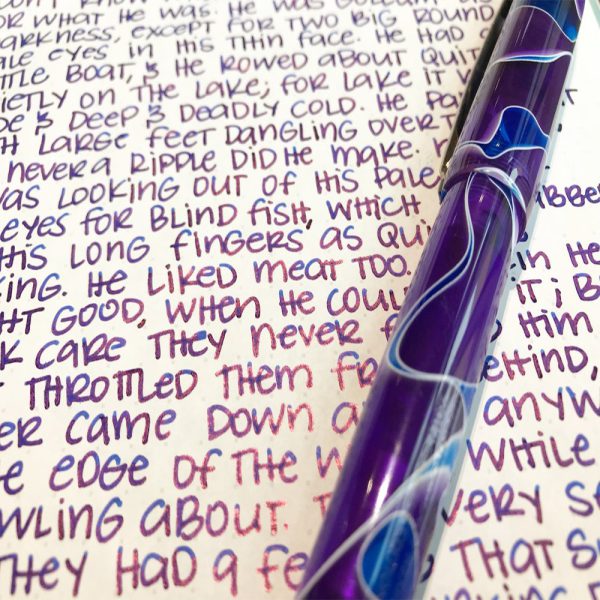 KNOW
OR WHAT HE WAS. HE WAS GOLLUM
ARKNESS, EXCEPT FOR TWO BIG ROUND
ALE EYES IN HIS THIN FACE. HE HAD A
TTLE BOAT, & HE ROWED ABOUT QUIT
IETLY ON THE LAKE; FOR LAKE IT W
DE & DEEP & DEADLY COLD. HE PA
H LARGE FEET DANGLING OVER T
NEVER A RIPPLE DID HE MAKE. N
WAS LOOKING OUT OF HIS PALE
EYES FOR BLIND FISH, WHICH ABBE
HIS LONG FINGERS AS QUI
KING. HE LIKED MEAT TOO. IN HE
HT GOOD, WHEN HE COUL IT; B
K CARE THEY NEVER F HIM
T THROTTLED THEM FR EHIND,
ER CAME DOWN A ANYW
E EDGE OF THE W WHILE
WLING ABOUT. T VERY S
THEY HAD A FE THAT S